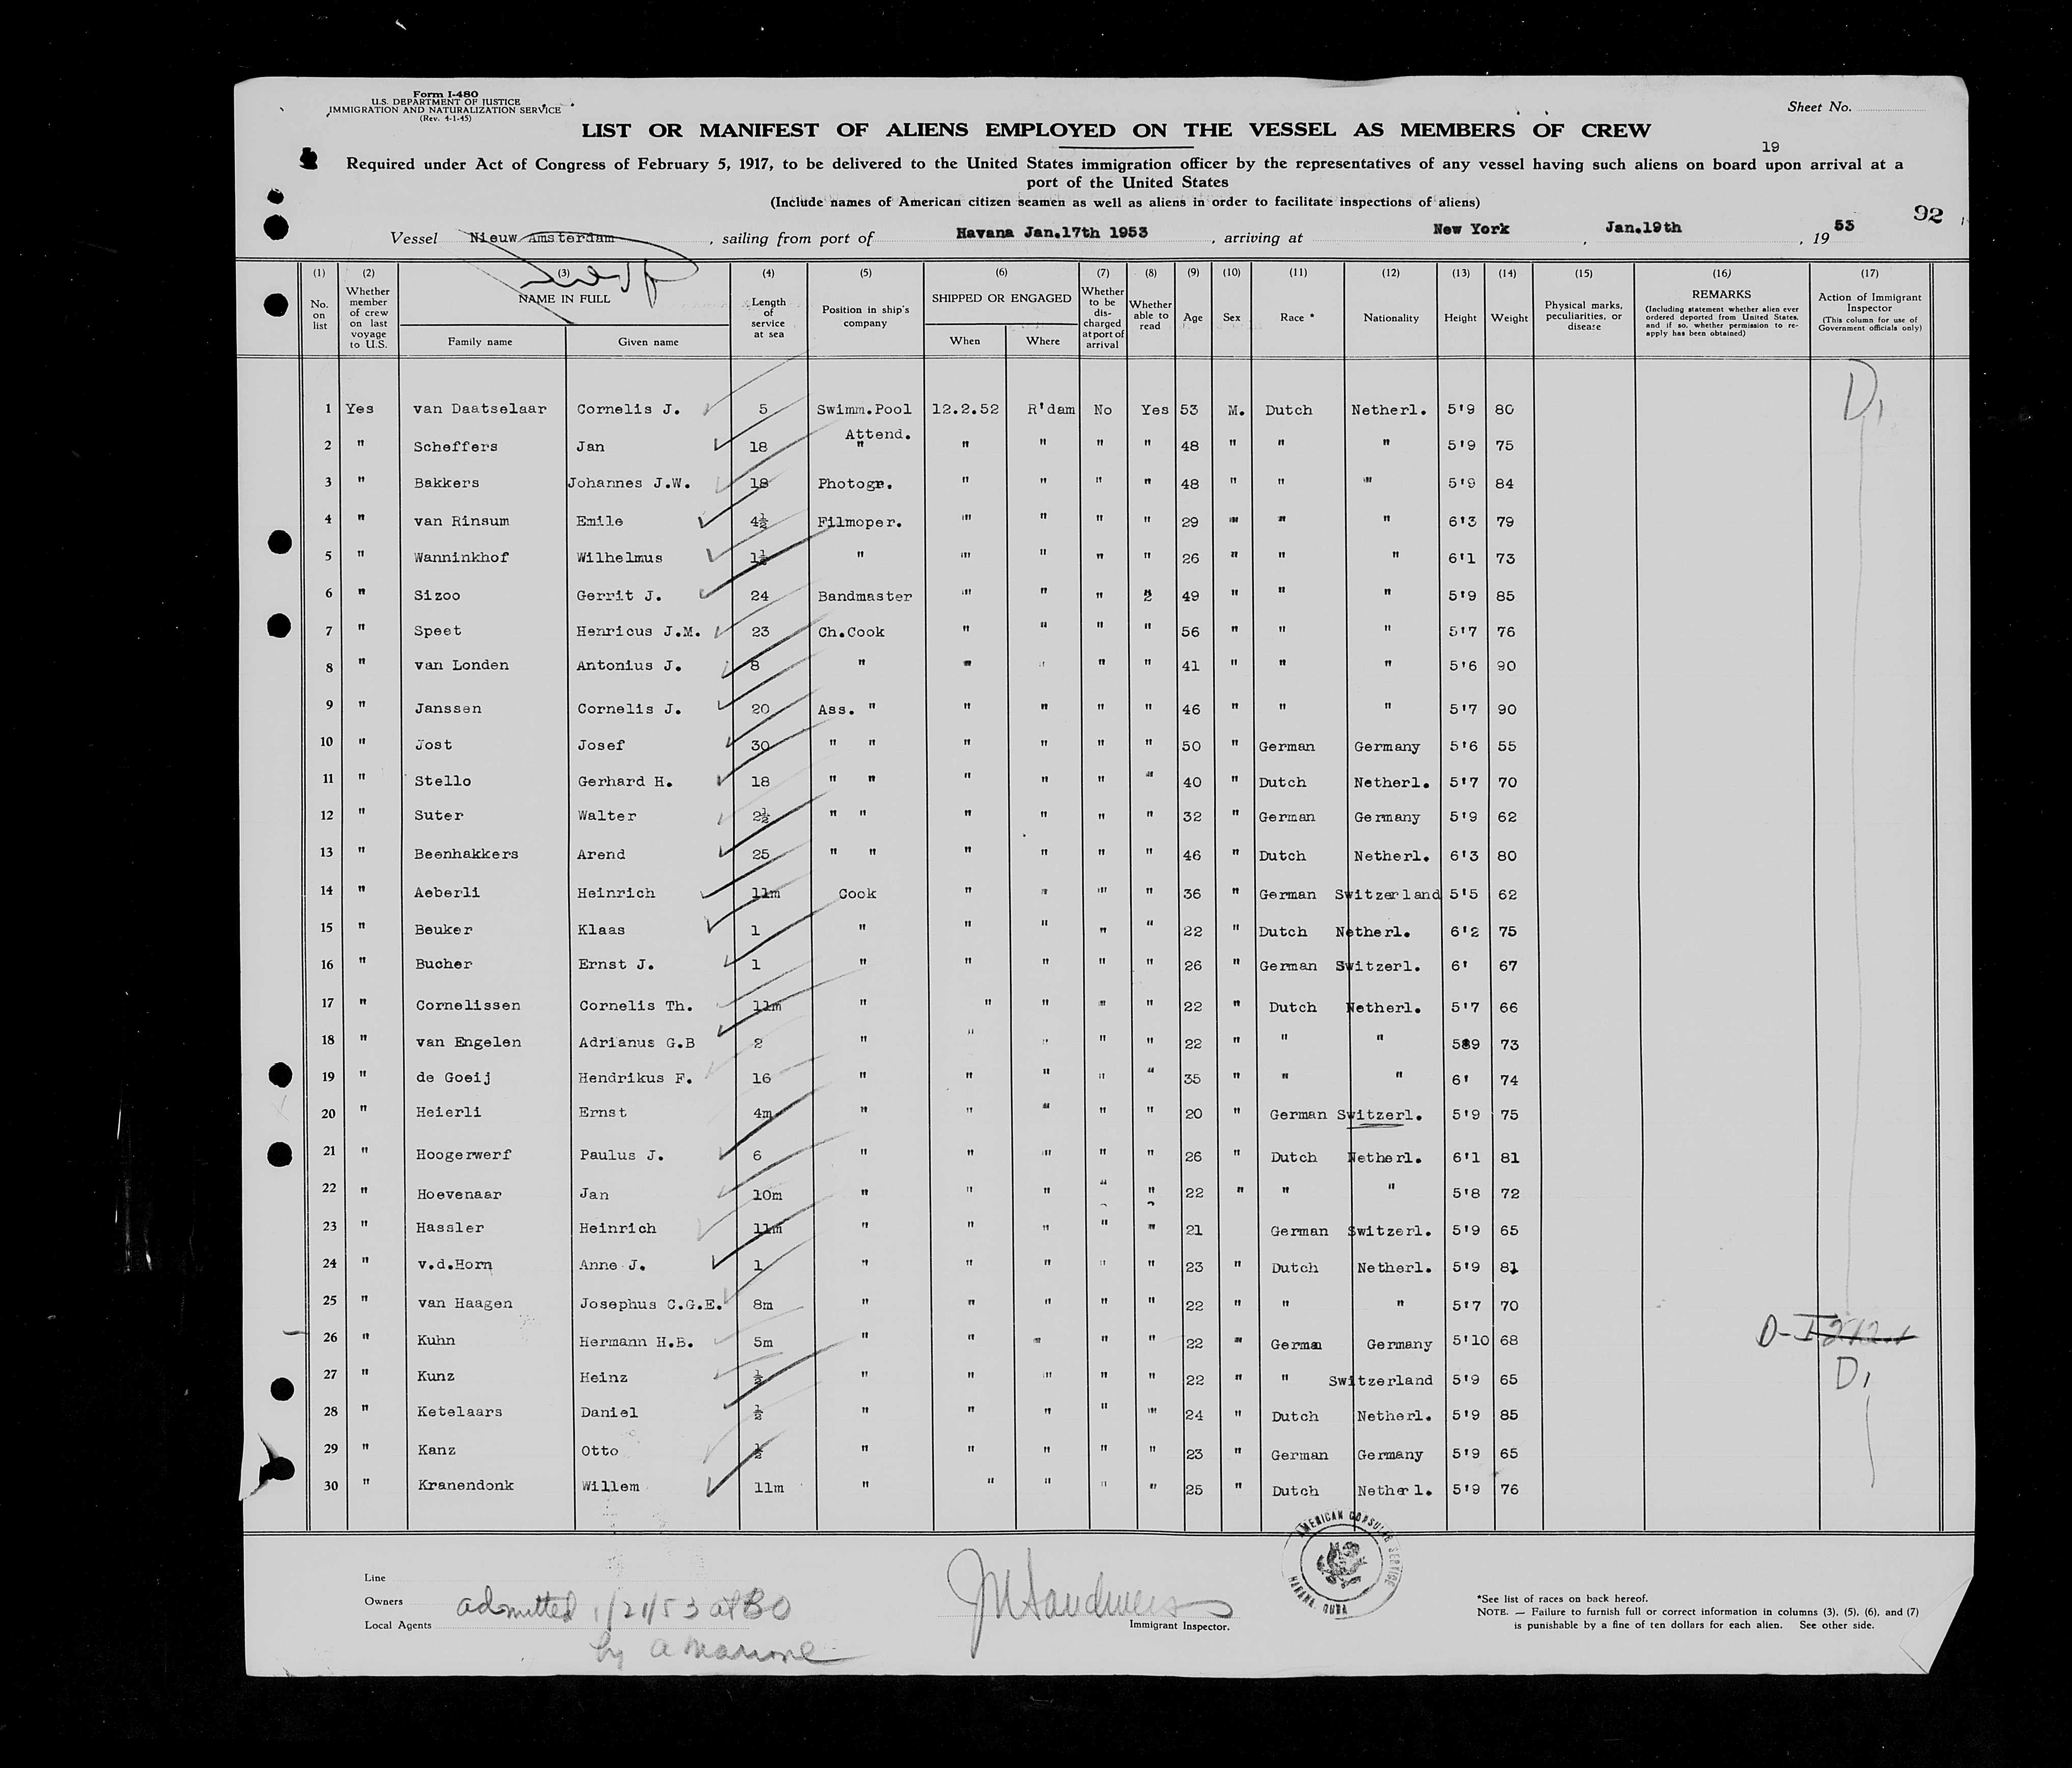 Form I-480
U.S. DEPARTMENT OF JUSTICE
IMMIGRATION AND NATURALIZATION SERVICE
(Rev. 4-1-45)
Sheet No.
LIST OR MANIFEST OF ALIENS EMPLOYED ON THE VESSEL AS MEMBERS OF CREW
19
Required under Act of Congress of February 5, 1917, to be delivered to the United States immigration officer by the representatives of any vessel having such aliens on board upon arrival at a
port of the United States
(Include names of American citizen seamen as well as aliens in order to facilitate inspections of aliens)
92
Vessel Nieuw Amsterdam, sailing from port of Havana Jan.17th 1953, arriving at New York, Jan.19th, 19 53
(1) (2) (3) (4) (5) (6) (7) (8) (9) (10) (11) (12) (13) (14) (15) (16) (17)
No. on list
Whether member of crew on last voyage to U.S.
NAME IN FULL
Family name
Given name
Length of service at sea
Position in ship's company
SHIPPED OR ENGAGED
When
Where
Whether to be discharged at port of arrival
Whether able to read
Age
Sex
Race *
Nationality
Height
Weight
Physical marks, peculiarities, or disease
REMARKS
(Including statement whether alien ever ordered deported from United States, and if so, whether permission to re-apply has been obtained)
Action of Immigrant Inspector
(This column for use of Government officials only)
1 Yes van Daatselaar Cornelis J. 5 Swimm.Pool 12.2.52 R'dam No Yes 53 M. Dutch Netherl. 5'9 80 D,
Attend.
2 " Scheffers Jan 18 " " " " " 48 " " " 5'9 75
3 " Bakkers Johannes J.W. 18 Photogr. " " " " 48 " " " 5'9 84
4 " van Rinsum Emile 4½ Filmoper. " " " " 29 " " " 6'3 79
5 " Wanninkhof Wilhelmus 1½ " " " " " 26 " " " 6'1 73
6 " Sizoo Gerrit J. 24 Bandmaster " " " " 49 " " " 5'9 85
7 " Speet Henricus J.M. 23 Ch.Cook " " " " 56 " " " 5'7 76
8 " van Londen Antonius J. 8 " " " " " 41 " " " 5'6 90
9 " Janssen Cornelis J. 20 Ass. " " " " " 46 " " " 5'7 90
10 " Jost Josef 30 " " " " " " 50 " German Germany 5'6 55
11 " Stello Gerhard H. 18 " " " " " " 40 " Dutch Netherl. 5'7 70
12 " Suter Walter 2½ " " " " " " 32 " German Germany 5'9 62
13 " Beenhakkers Arend 25 " " " " " " 46 " Dutch Netherl. 6'3 80
14 " Aeberli Heinrich 11m Cook " " " " 36 " German Switzerland 5'5 62
15 " Beuker Klaas 1 " " " " " 22 " Dutch Netherl. 6'2 75
16 " Bucher Ernst J. 1 " " " " " 26 " German Switzerl. 6' 67
17 " Cornelissen Cornelis Th. 11m " " " " " 22 " Dutch Netherl. 5'7 66
18 " van Engelen Adrianus G.B 2 " " " " " 22 " " " 5'9 73
19 " de Goeij Hendrikus F. 16 " " " " " 35 " " " 6' 74
20 " Heierli Ernst 4m " " " " " 20 " German Switzerl. 5'9 75
21 " Hoogerwerf Paulus J. 6 " " " " " 26 " Dutch Netherl. 6'1 81
22 " Hoevenaar Jan 10m " " " " " 22 " " " 5'8 72
23 " Hassler Heinrich 11m " " " " " 21 German Switzerl. 5'9 65
24 " v.d.Horn Anne J. 1 " " " " " 23 " Dutch Netherl. 5'9 81
25 " van Haagen Josephus C.G.E. 8m " " " " " 22 " " " 5'7 70
26 " Kuhn Hermann H.B. 5m " " " " " 22 " German Germany 5'10 68 D-
27 " Kunz Heinz ½ " " " " " 22 " " Switzerland 5'9 65 D,
28 " Ketelaars Daniel ½ " " " " " 24 " Dutch Netherl. 5'9 85
29 " Kanz Otto ½ " " " " " 23 " German Germany 5'9 65
30 " Kranendonk Willem 11m " " " " " 25 " Dutch Netherl. 5'9 76
AMERICAN CONSULAR SERVICE
HABANA, CUBA
Line
Owners
Local Agents
admitted 1/21/53 at BO
by
Immigrant Inspector.
*See list of races on back hereof.
NOTE. — Failure to furnish full or correct information in columns (3), (5), (6), and (7)
is punishable by a fine of ten dollars for each alien. See other side.